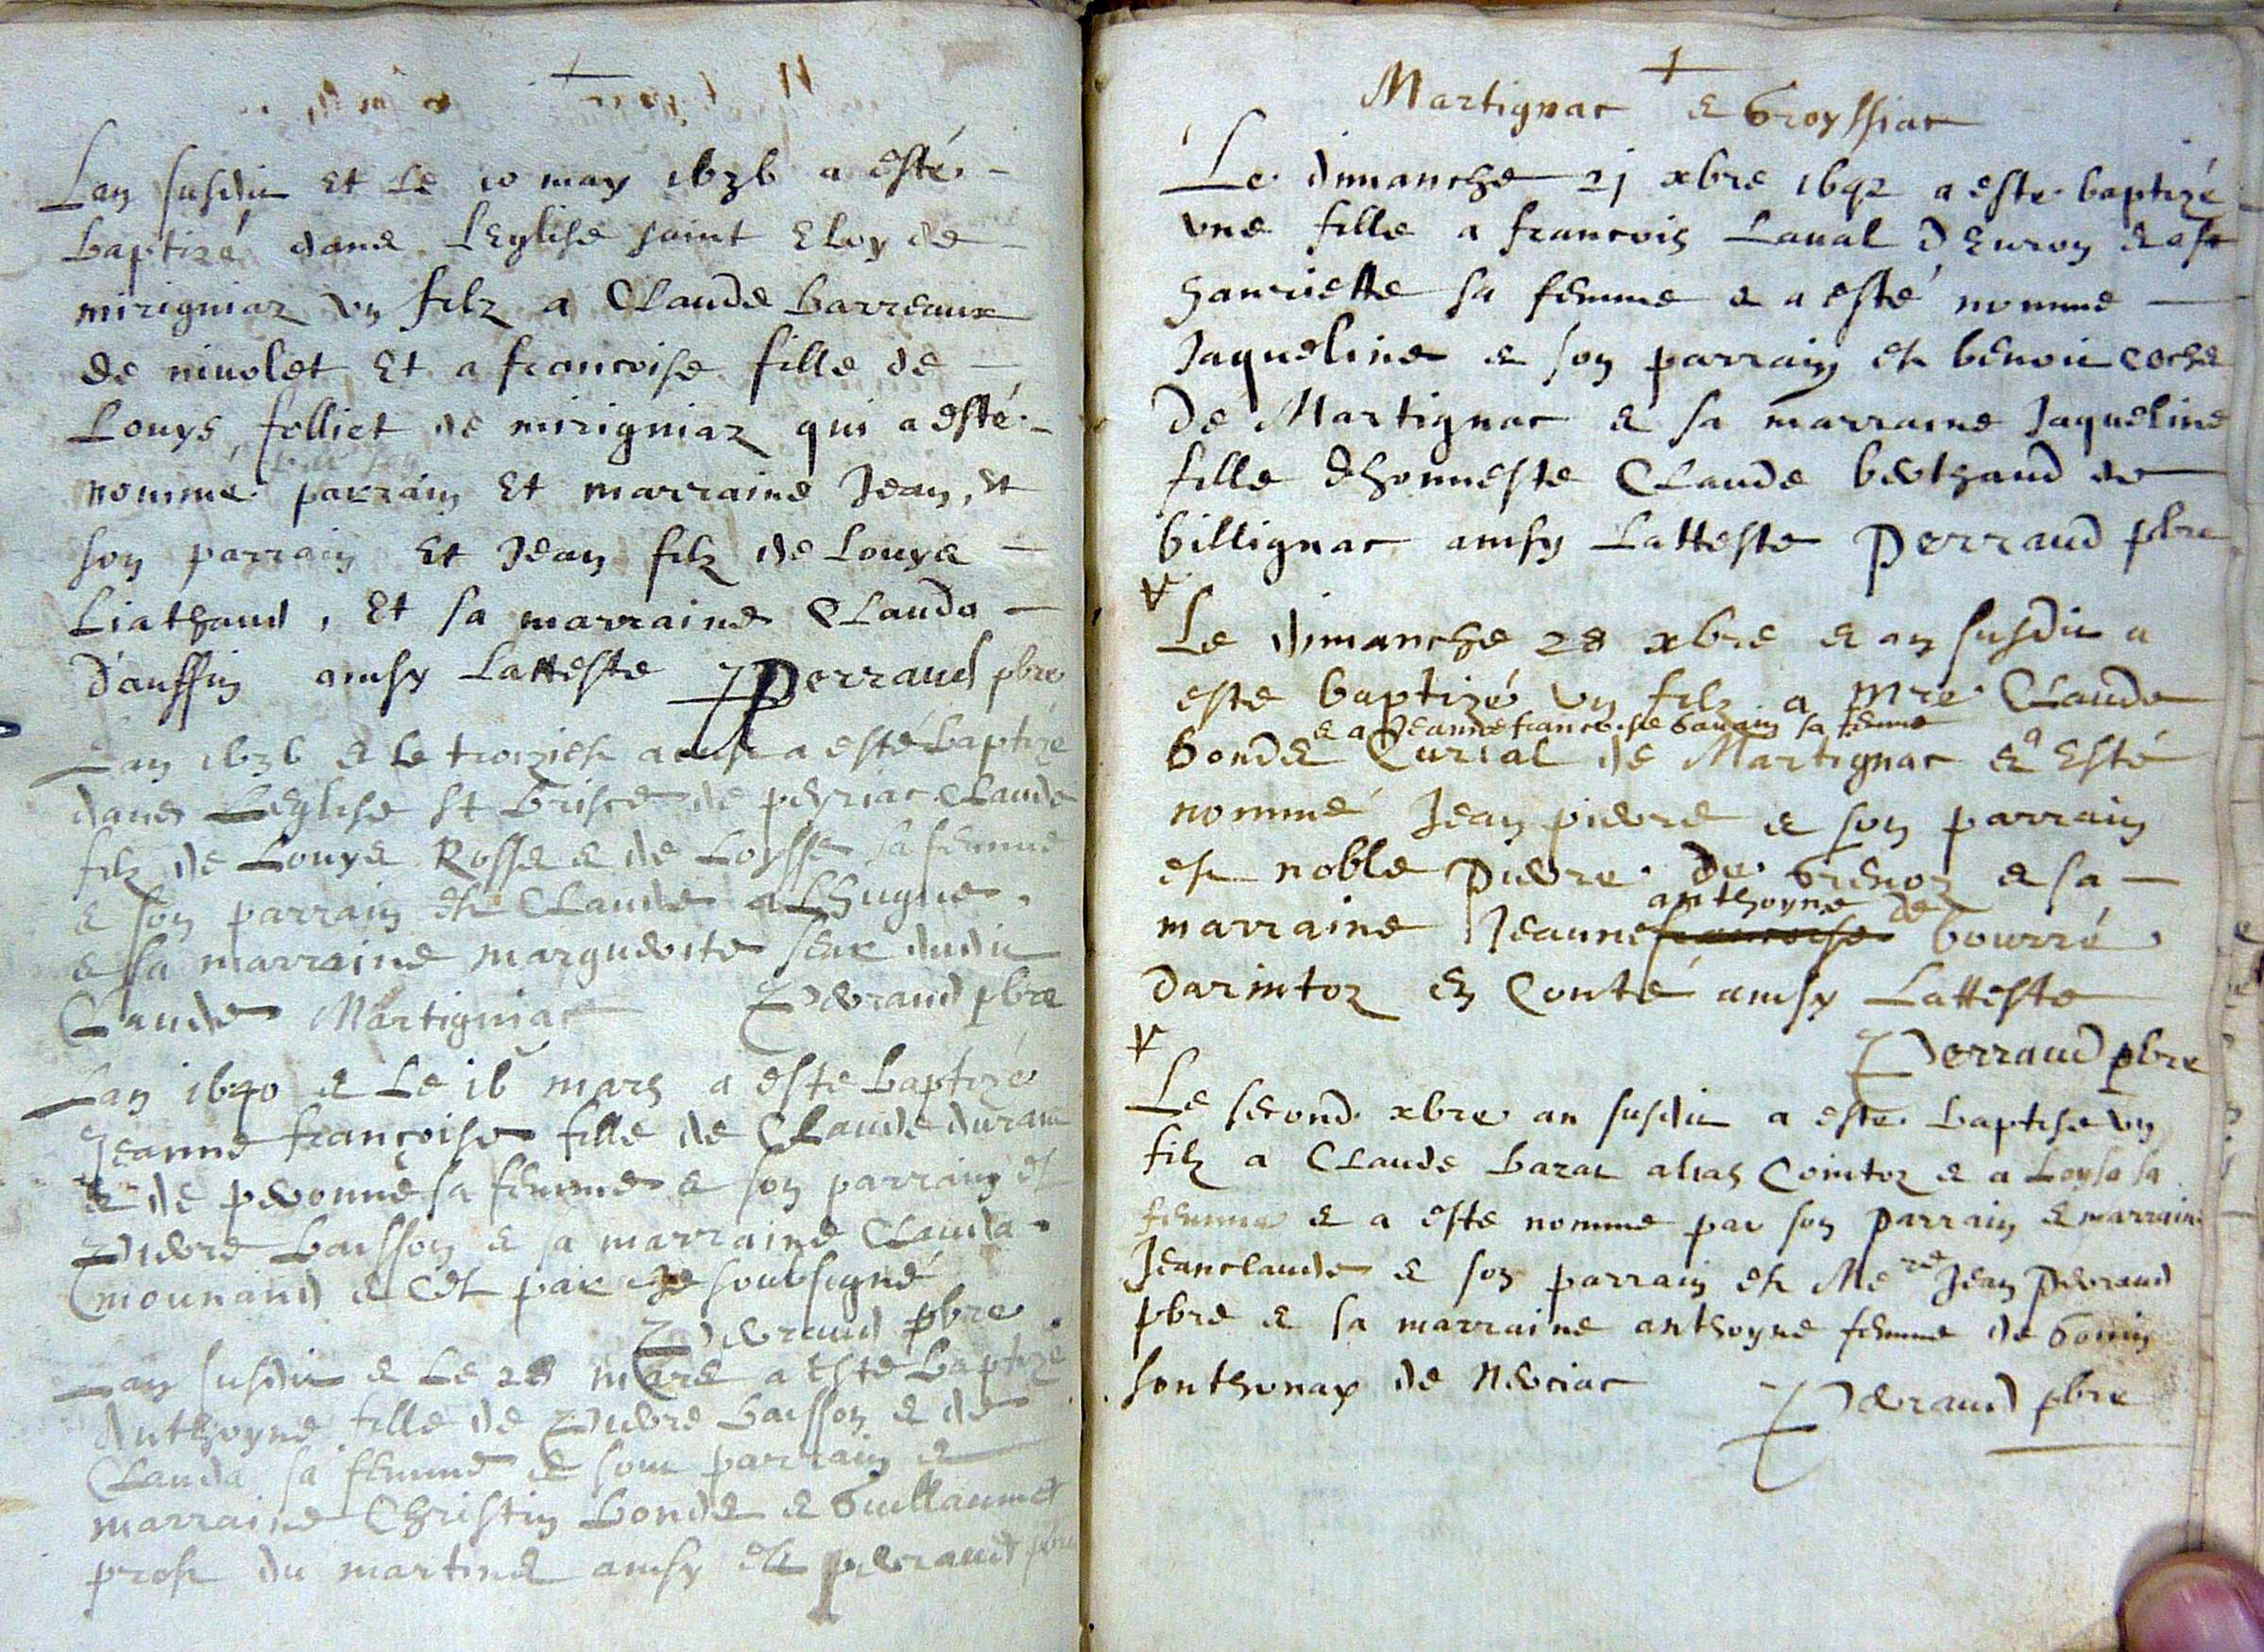 Lan susdit et le 10 may 1636 a esté
baptizé dans leglise saint Eloy de
mirigniaz un filz a Claude barreaux
de niuolet Et a francoise fille de
Louys folliet de mirigniaz qui a esté
nommé par son parrain Et marraine Jean, et
son parrain Et Jean filz de Louys
Liathaud, Et sa marraine Clauda
dauffin ainsy Latteste Perraud pbre
Lan 1636 & le troizies aust a esté baptizé
dans Leglise st brisce de peyriac Claude
filz de Louys Rosse & de Loysse sa femme
& son parrain est Claude alhugue
& sa marraine marguerite seur dudit
Claude Martigniac Perraud pbre
Lan 1640 & Le 16 mars a este baptizé
Jeanne françoise fille de Claude durant
& de peronne sa femme & son parrain est
Pierre baisson & sa marraine Clauda
mounand & Est par Je soubsigné
Perraud pbre
Lan susdit & Le 28 mars a Este baptizé
Anthoyne fille de Pierre baisson & de
Clauda sa femme & sont parrain &
marraine Christin bonde & Guillaumet
prost du martinet ainsy est perraud pbre
Martignac & Groyssiac
Le dimanche 21 xbre 1642 a este baptizé
vne fille a francois Laual d Euron & a
hanriette sa femme & a esté nomme
Jaqueline & son parrain est benoit coche
de Martignac & sa marraine Jaqueline
fille dhonneste Claude berthaud de
billignac ainsy Latteste Perraud pbre
Le dimanche 28 xbre & an susdit a
este baptizé un filz a Mre Claude
& a Jeanne francoise Gauain sa femme
bonde Curial de Martignac & a Esté
nommé Jean pierre & son parrain
est noble pierre de Grenoz & sa
marraine Jeanne francoise anthoyne de bourré
darintoz En Conté ainsy Latteste
Perraud pbre
Le second xbre an susdit a este baptise un
filz a Claude baraz alias Cointoz & a Loysa sa
femme & a este nomme par son parrain & marraine
Jeanclaude & son parrain est Mere Jean Perraud
pbre & sa marraine anthoyne femme de Gonin
sonthonax de Nerciac Perraud pbre